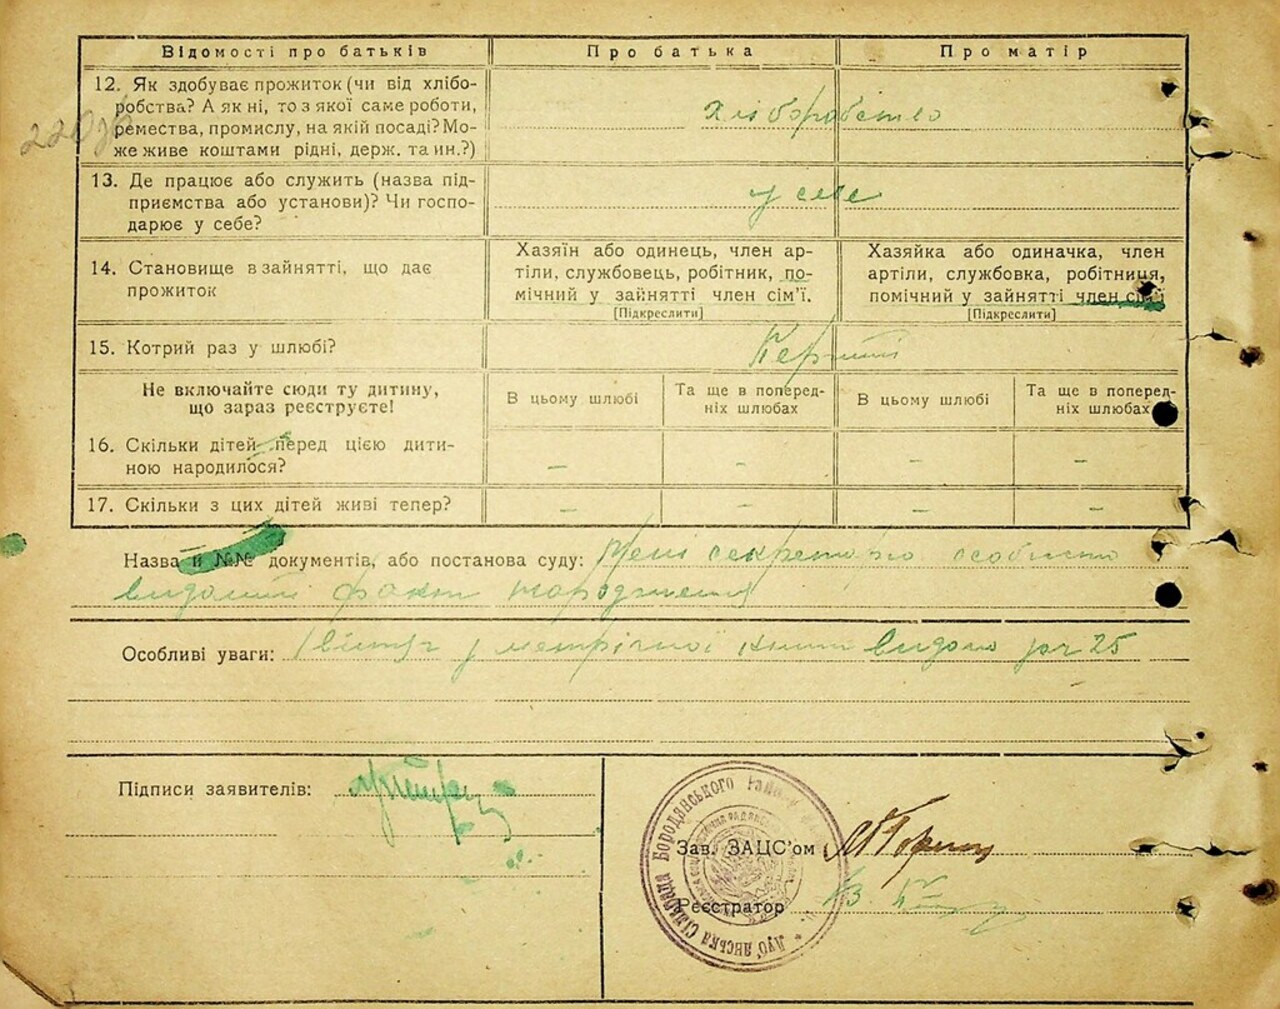 Відомості про батьків
Про батька
Про матір
12. Як здобуває прожиток (чи від хлібо-
робства? А як ні, то з якої саме роботи,
ремества, промислу, на якій посаді? Мо-
же живе коштами рідні, держ. та ин.?)
хліборобство
13. Де працює або служить (назва під-
приємства або установи)? Чи госпо-
дарює у себе?
у себе
14. Становище в зайнятті, що дає
прожиток
Хазяїн або одинець, член ар-
тіли, службовець, робітник, по-
мічний у зайнятті член сім'ї.
[Підкреслити]
Хазяйка або одиначка, член
артіли, службовка, робітниця,
помічний у зайнятті член сім'ї
[Підкреслити]
15. Котрий раз у шлюбі?
Перший
Не включайте сюди ту дитину,
що зараз реєструєте!
В цьому шлюбі
Та ще в поперед-
ніх шлюбах
В цьому шлюбі
Та ще в поперед-
ніх шлюбах
16. Скільки дітей перед цією дити-
ною народилося?
– – – –
17. Скільки з цих дітей живі тепер?
– – – –
Назва й №№ документів, або постанова суду: Мені секретарю особисто
видомий факт народження
Особливі уваги: у метрічної видано 25
Підписи заявителів:
Зав. ЗАЦС'ом
Реєстратор В.
Луб'янська сільрада Бородянського